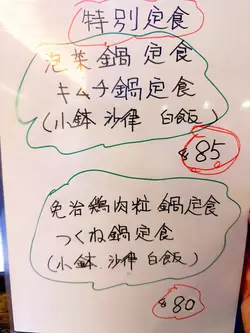 特別定食
泡菜鍋定食
キムチ鍋定食
(小鉢 沙律 白飯)
$85
免治鶏肉粒鍋定食
つくね鍋定食
(小鉢 沙律 白飯)
$80